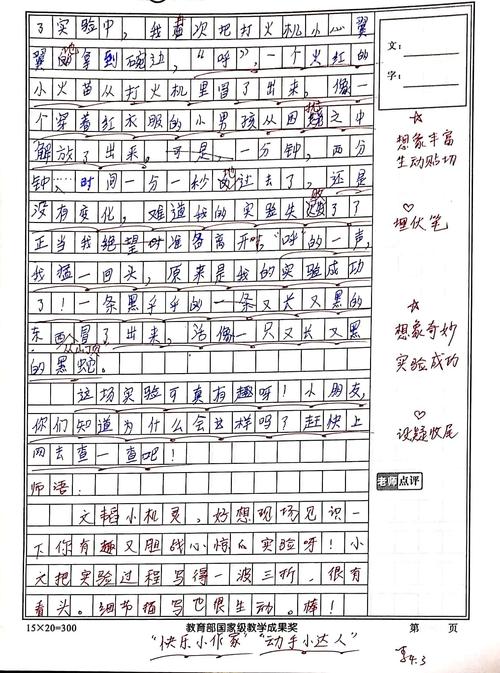 了实验中，我再次把打火机小心翼
翼地拿到碗边，“呼”，一个火红的
小火苗从打火机里冒了出来，像一
个穿着红衣服的小男孩从困境之中
解放了出来，可是，一分钟，两分
钟……时间一分一秒地过去了，还是
没有变化，难道我的实验失败了？
正当我绝望时准备离开时，“呼”的一声，
我猛一回头，原来是我的实验成功
了！一条黑乎乎的一条又长又黑的
东西冒了出来，活像一只又长又黑
从小山顶
的黑蛇。
这场实验可真有趣呀！小朋友，
你们知道为什么会这样吗？赶快上
网去查一查吧！
师语：
文韬小机灵，好想现场见识一
下你有趣又胆战心惊的实验呀！小
文把实验过程写得一波三折，很有
看头。细节描写也很生动。棒！
15×20=300
教育部国家级教学成果奖
第 页
“快乐小作家”“动手小达人”
4.3
文：
字：
想象丰富
生动贴切
埋伏笔
想象奇妙
实验成功
设疑收尾
老师点评